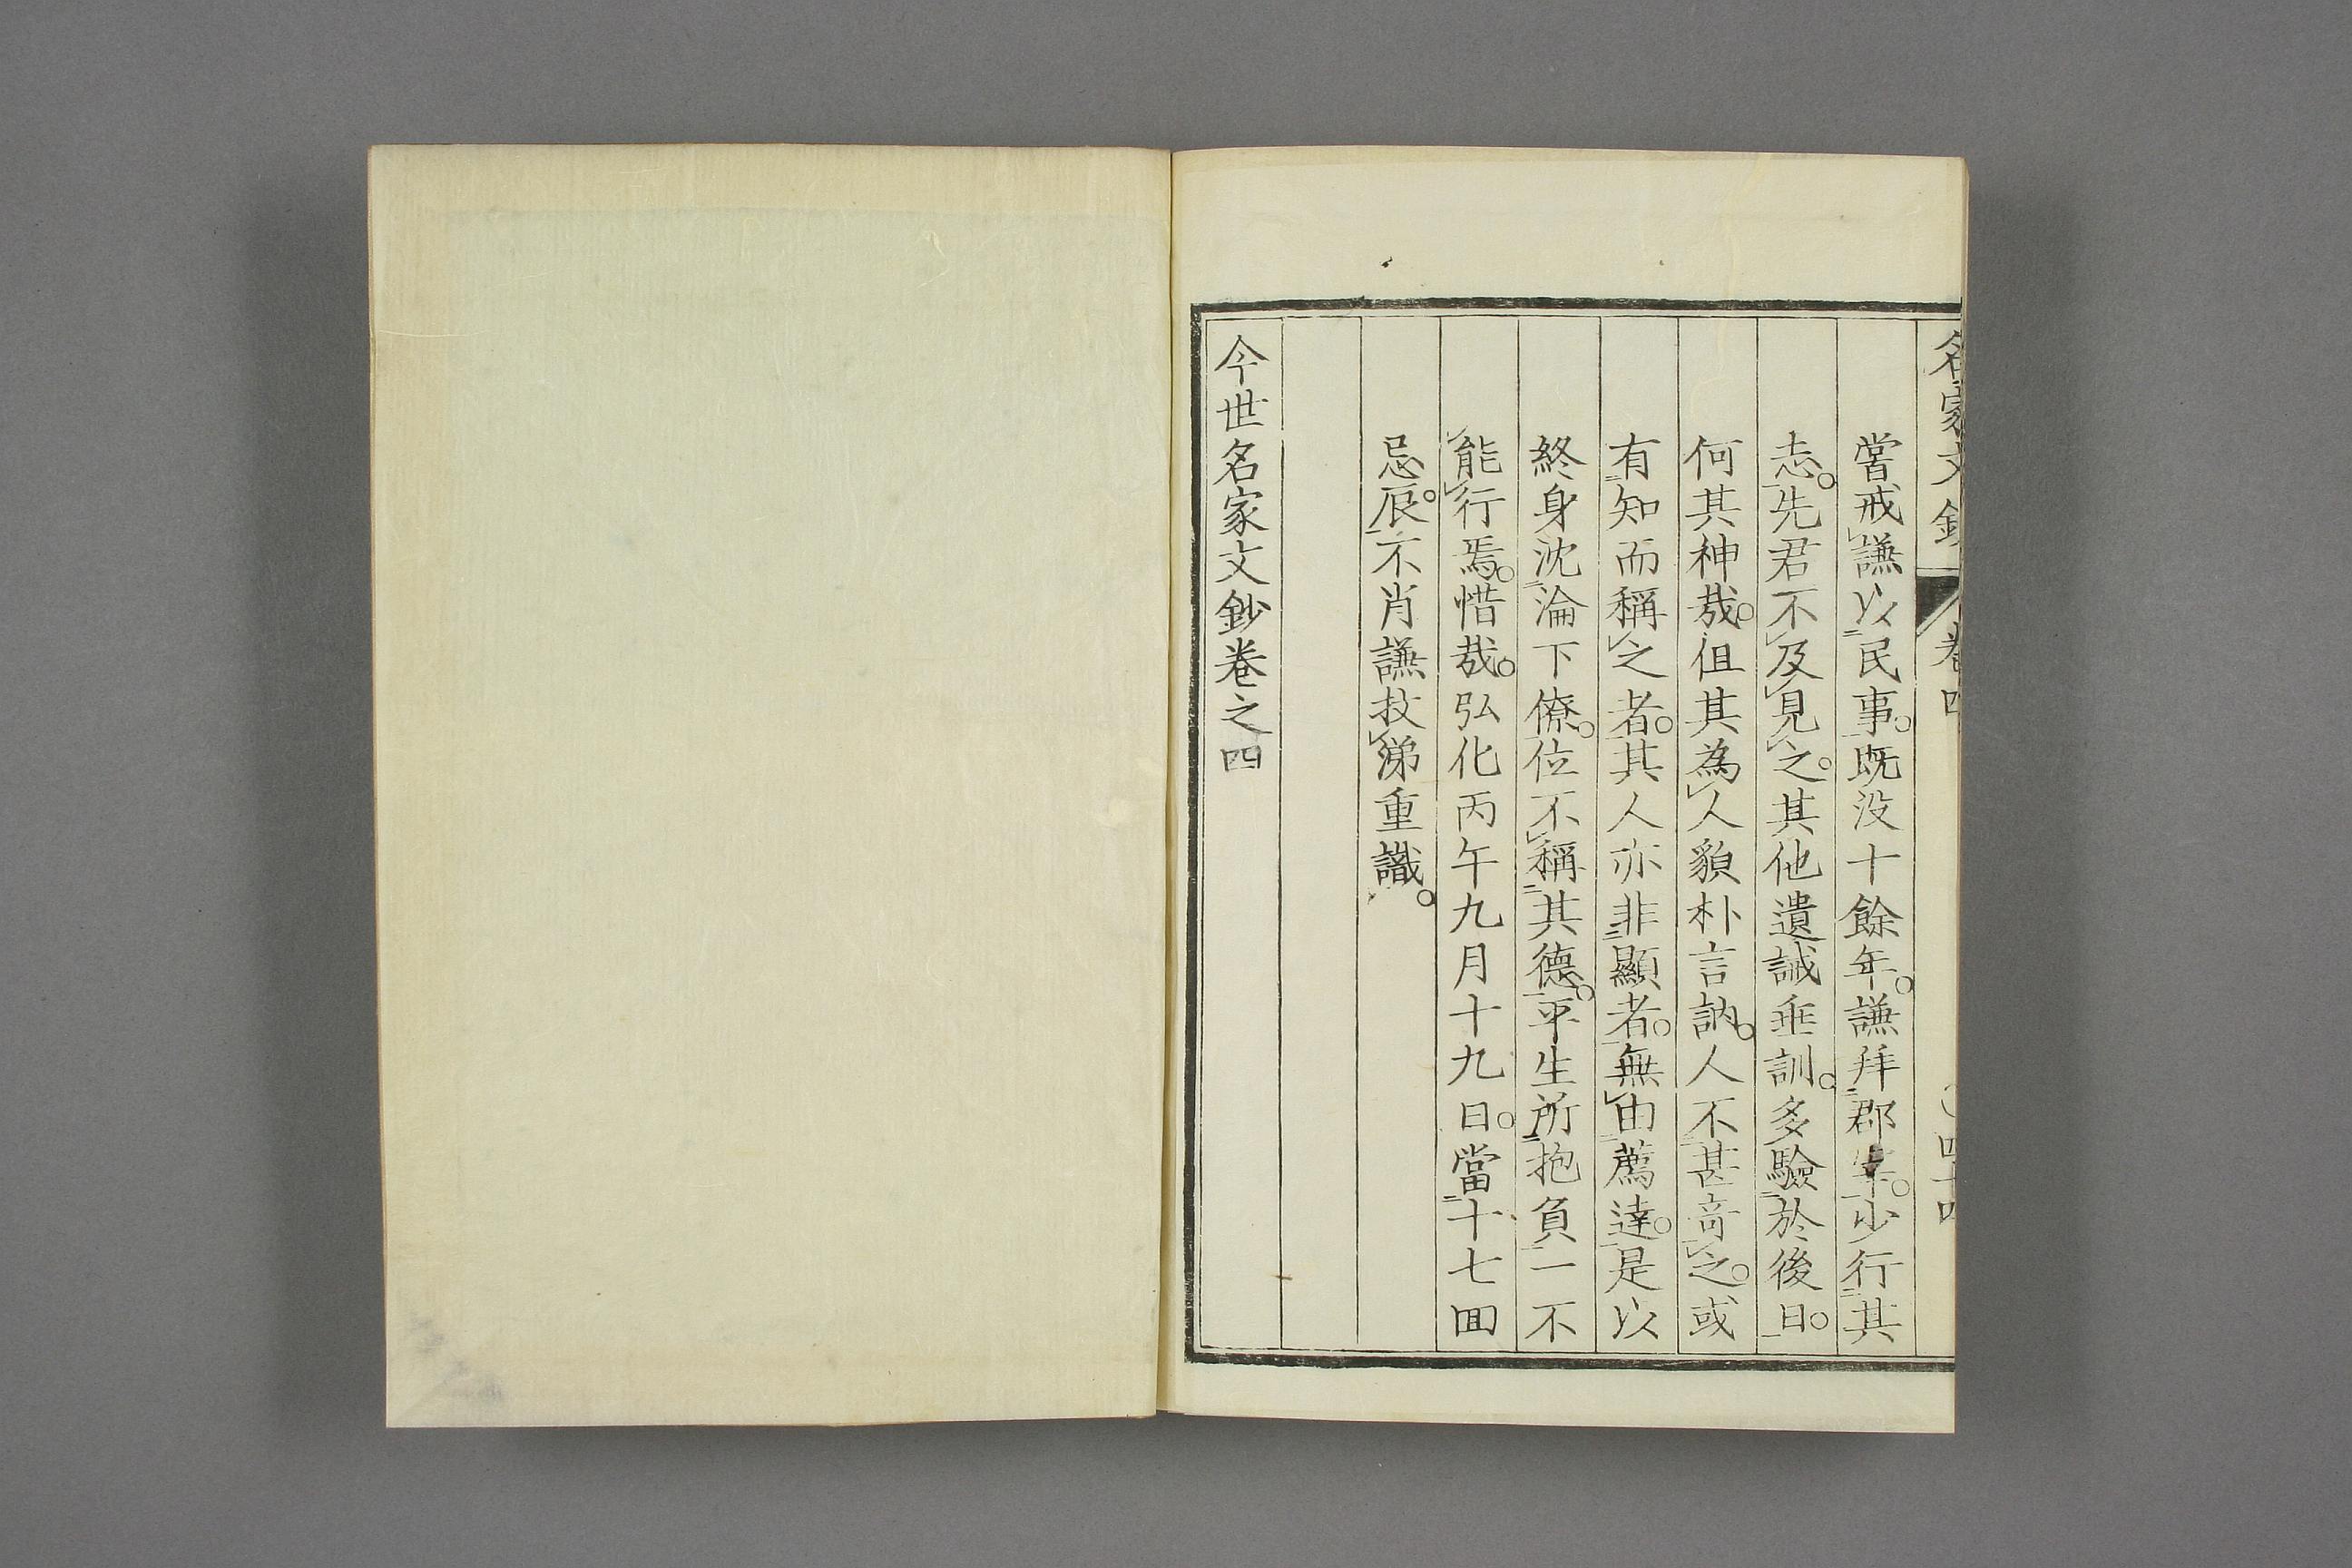 名家文鈔 卷四 四十四
嘗戒謙以民事。既没十餘年。謙拜郡宰。少行其
志。先君不及見之。其他遺誡垂訓。多驗於後日。
何其神哉。但其為人貌朴言訥。人不甚奇之。或
有知而稱之者。其人亦非顯者。無由薦達。是以
終身沈淪下僚。位不稱其德。平生所抱負一不
能行焉。惜哉。弘化丙午九月十九日。當十七回
忌辰。不肖謙抆涕重識。
今世名家文鈔卷之四